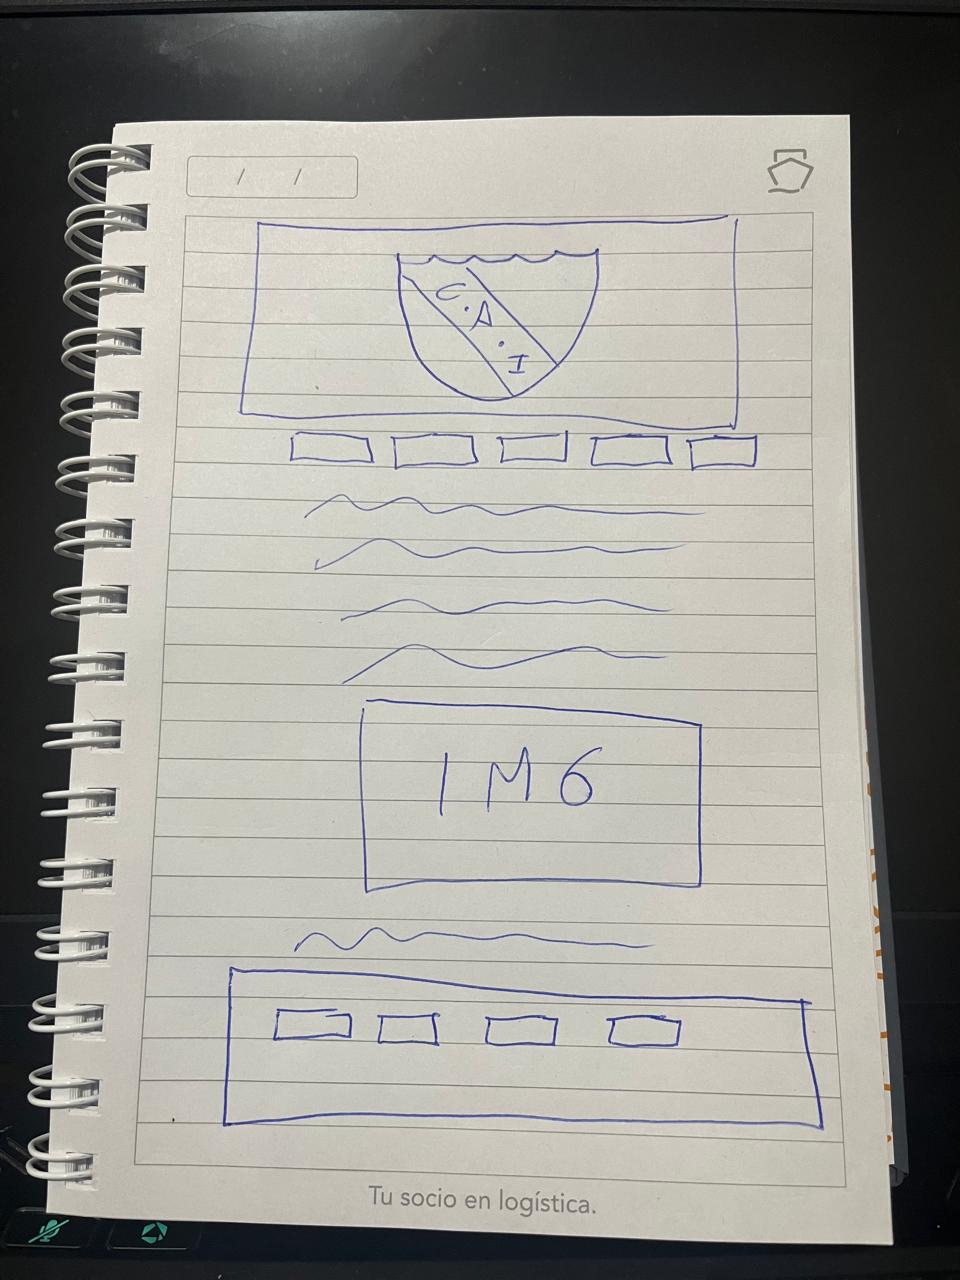 / /
C.A.I
IMG
Tu socio en logística.